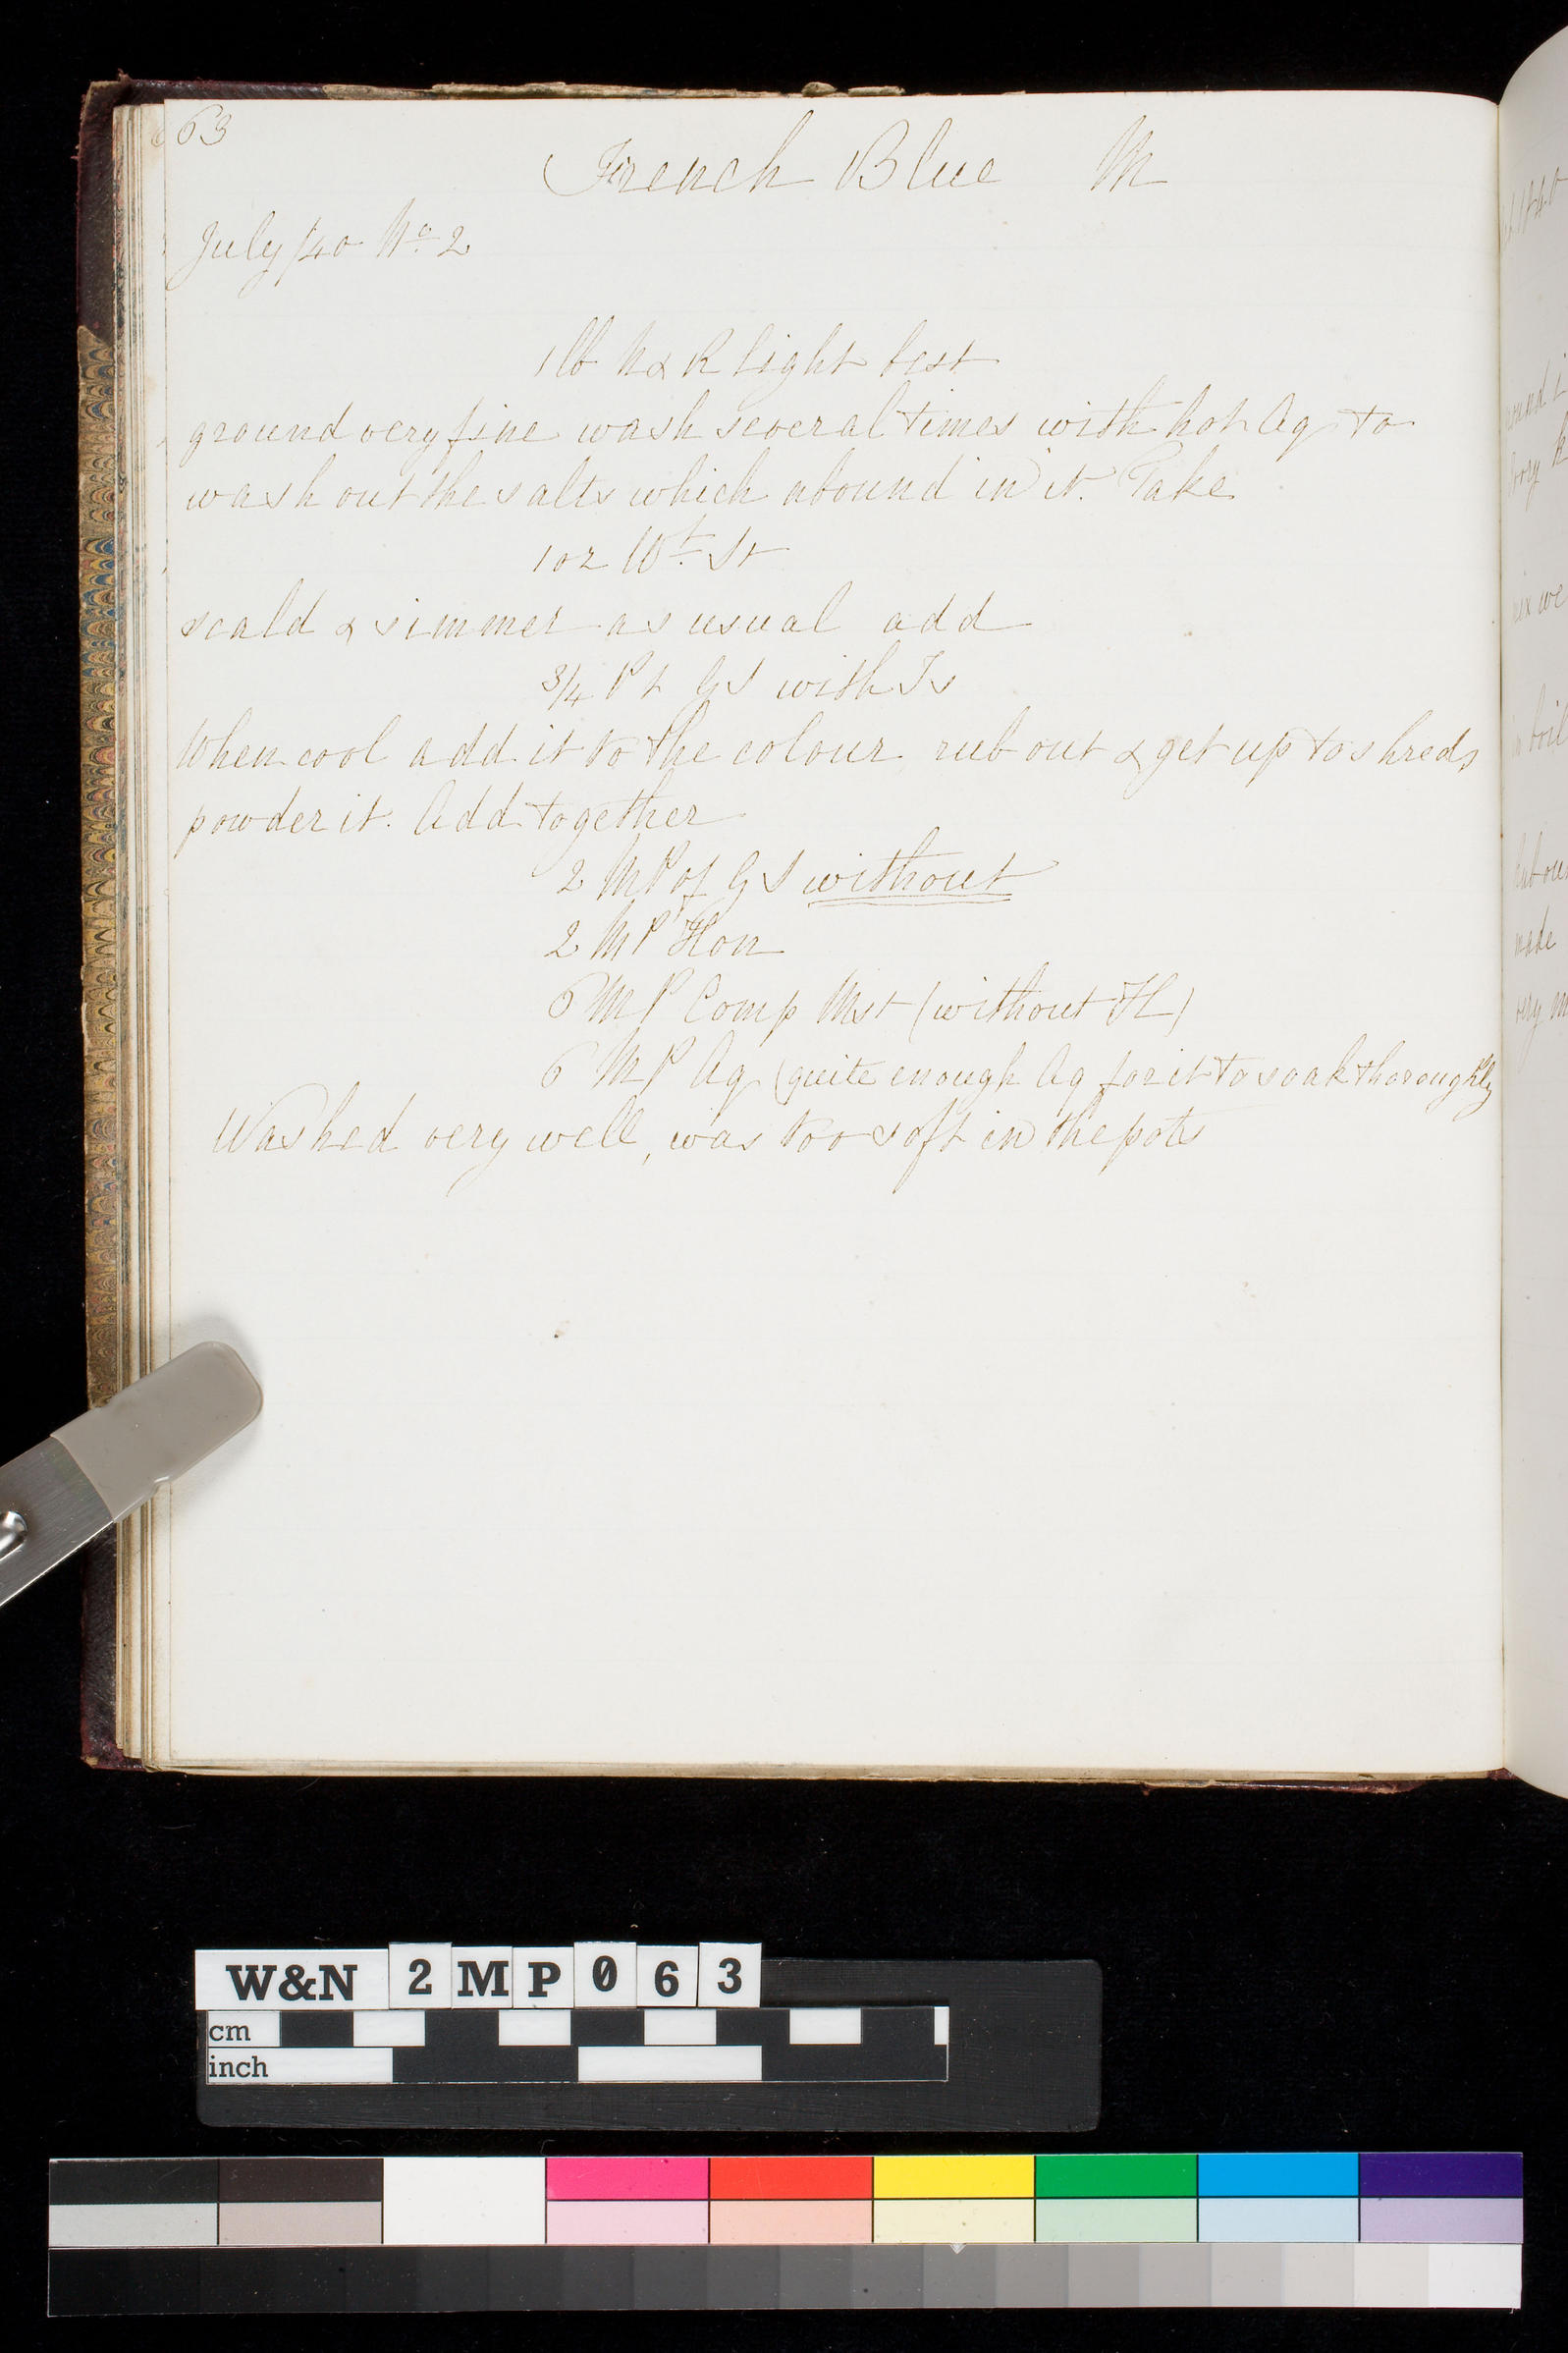 63
French Blue M
July /40 No. 2
1 lb N & R light best
ground very fine wash several times with hot Aq to
wash out the salts which abound in it. Take
1 oz Wt. St
scald & simmer as usual add
3/4 Pt GS with Ts
When cool add it to the colour, rub out & get up to shreds
powder it. Add together
2 MP of GS without
2 MP Hon
6 MP Comp Mst (without H)
6 MP Aq (quite enough Aq for it to soak thoroughly
Washed very well, was too soft in the pots
made
W&N 2MP063
cm
inch